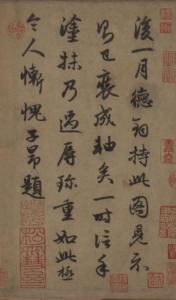 後一月德鈞持此圖見示
則已裝成軸矣一時信手
塗抹乃過辱珍重如此極
令人慚愧子昂題